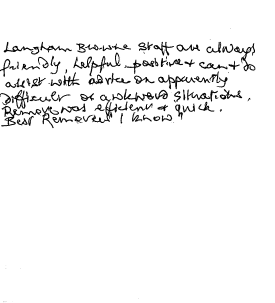 Langham Browne staff are always
friendly, helpful, positive & can & do
assist with advice on apparently
difficult or awkward situations.
Removal was efficient & quick.
Best Removers I know"